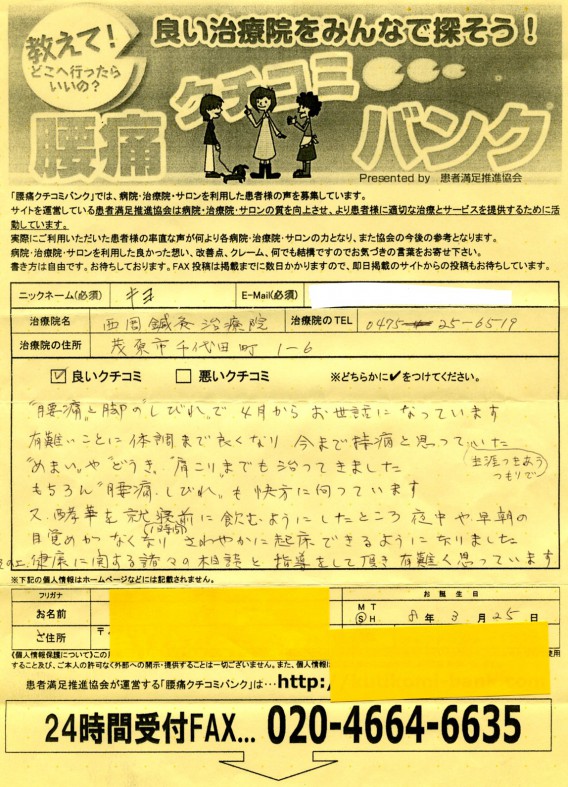 教えて!
どこへ行ったら
いいの?
良い治療院をみんなで探そう!
腰痛
クチコミ
バンク
Presented by 患者満足推進協会
「腰痛クチコミバンク」では、病院・治療院・サロンを利用した患者様の声を募集しています。
サイトを運営している患者満足推進協会は病院・治療院・サロンの質を向上させ、より患者様に適切な治療とサービスを提供するために活
動しています。
実際にご利用いただいた患者様の率直な声が何より各病院・治療院・サロンの力となり、また協会の今後の参考となります。
病院・治療院・サロンを利用した良かった想い、改善点、クレーム、何でも結構ですのでお気づきの言葉をお寄せ下さい。
書き方は自由です。お待ちしております。FAX 投稿は掲載までに数日かかりますので、即日掲載のサイトからの投稿もお待ちしています。
ニックネーム(必須) E-Mail(必須)
治療院名 西岡鍼灸治療院 治療院のTEL 0475 25-6519
治療院の住所 茂原市千代田町 1-6
☑ 良いクチコミ □ 悪いクチコミ ※どちらかに✔をつけてください。
"腰痛"と脚の"しびれ"で 4月から お世話になっています
有難いことに 体調まで良くなり 今まで持病と思っていた
(生涯つきあうつもりで)
"めまい"や"どうき"、"肩こり"までも治ってきました
もちろん"腰痛、しびれ"も 快方に向っています
又、酵華を就寝前に飲むようにしたところ 夜中や早朝の
(1時間)
目覚めがなくなり さわやかに起床できるようになりました
その上、健康に関する諸々の相談と指導をして頂き有難く思っています
※下記の個人情報はホームページなどには記載されません。
フリガナ お誕生日
お名前 M T S H 8年 3月 25日
ご住所 〒
《個人情報保護について》この 使用
すること及び、ご本人の許可なく外部への開示・提供することは一切ございません。また、個人情報
患者満足推進協会が運営する「腰痛クチコミバンク」は…http:/
24時間受付FAX… 020-4664-6635